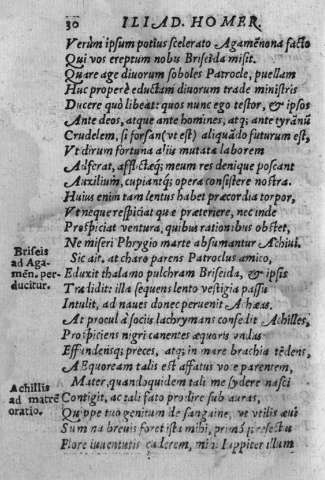 30 ILIAD. HOMER.
Verùm ipsum potius scelerato Agamẽnona facto
Qui vos ereptum nobis Briseida misit.
Quare age diuorum soboles Patrocle, puellam
Huc properè eductam diuorum trade ministris
Ducere quò libeat: quos nunc ego testor, & ipsos
Ante deos, atque ante homines, atq; ante tyrānũ
Crudelem, si forsan (vt est) aliquādo futurum est,
Vt dirum fortuna alijs mutata laborem
Adferat, afflictæq; meum res denique poscant
Auxilium, cupiantq; opera consistere nostra.
Huius enim tam lentus habet præcordia torpor,
Vt neque respiciat quæ præteriere, nec inde
Prospiciat ventura, quibus rationibus obstet,
Ne miseri Phrygio marte absumantur Achiui.
Briseis
ad Aga-
mẽn. per-
ducitur.
Sic ait, at charo parens Patroclus amico,
Eduxit thalamo pulchram Briseida, & ipsis
Tradidit: illa sequens lento vestigia passu
Intulit, ad naues donec peruenit Achæas.
At procul à socijs lachrymans consedit Achilles,
Prospiciens nigricanentes æquoris vndas
Effundensq; preces, atq; in mare brachia tẽdens,
AEquoream talis est affatus voce parentem,
Achillis
ad matrẽ
oratio.
Mater, quandoquidem tali me sydere nasci
Contigit, ac tali fato prodire sub auras,
Quippe tuo genitum de sanguine, vt vtilis æui
Sum na breuis foret ista mihi, primóq; resectus
Flore iuuentutis caderem, mihi Iuppiter illum